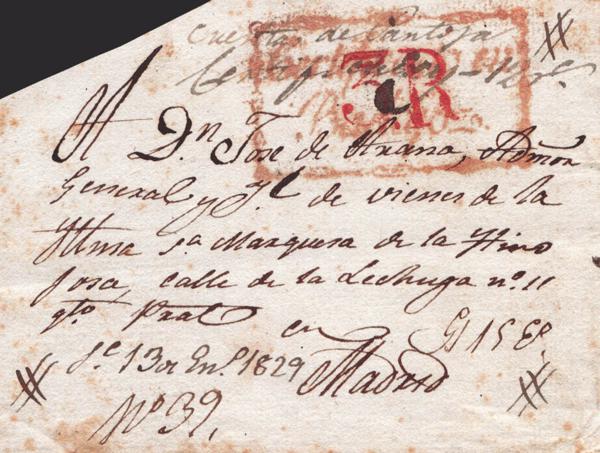 Cuesta de Pantoja
3.R
A Dn Jose de Arana, Admor
General y Jl de vienes de la
Illma Sa Marquesa de la Hino
josa, calle de la Lechuga no. 11
qto. Pral en
Madrid
Fe 13 de Eno. 1829
No 39.